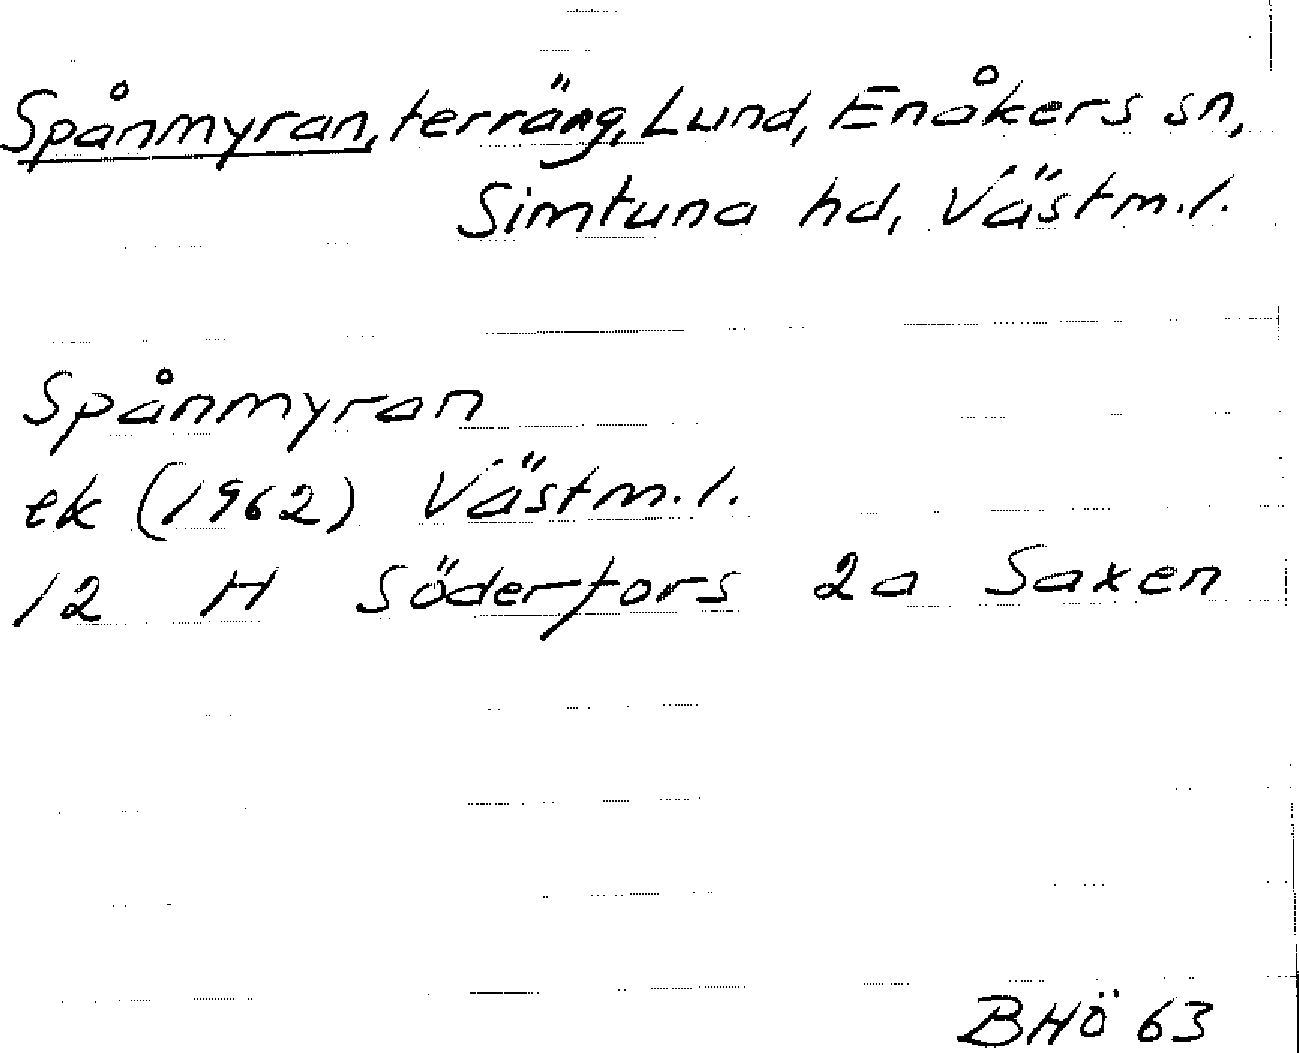 Spånmyran, terräng, Lund, Enåkers sn,
Simtuna hd, Västm.l.
Spånmyran
ek (1962) Västm.l.
12 H Söderfors 2a Saxen
BHÖ 63